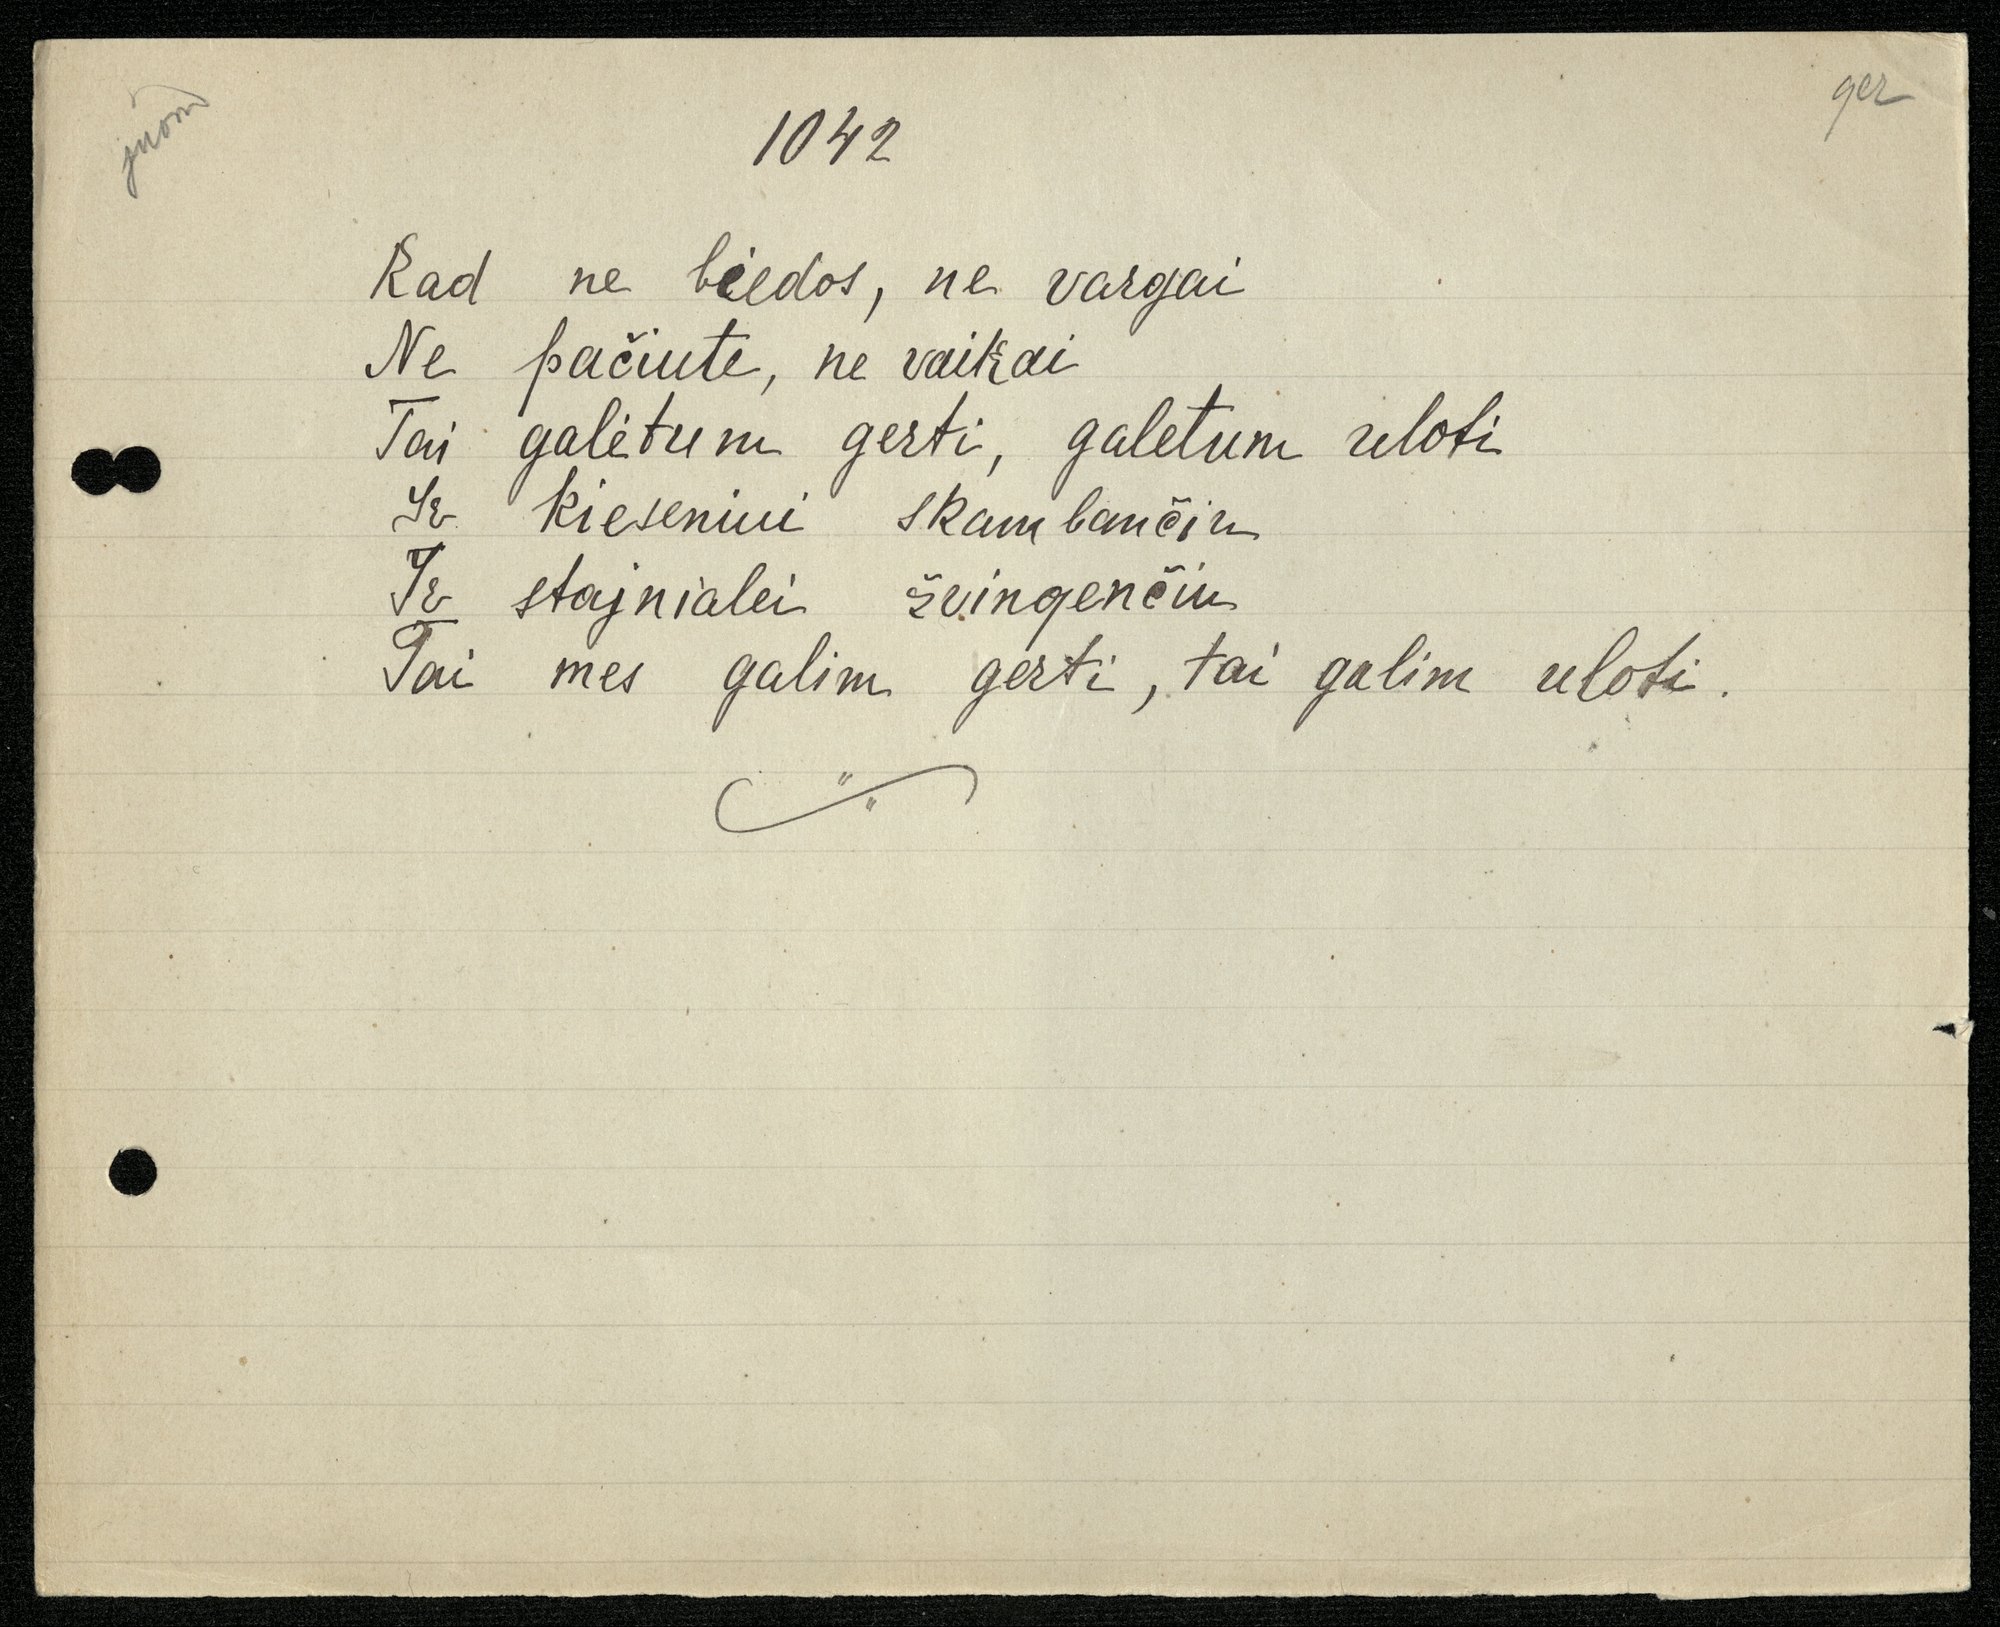 ger
juom
1042
Kad ne biedos, ne vargai
Ne pačiute, ne vaikai
Tai galėtum gerti, galetum uloti
Ir kieseniui skambančiu
Ir stajnialei žvingenčiu
Tai mes galim gerti, tai galim uloti.